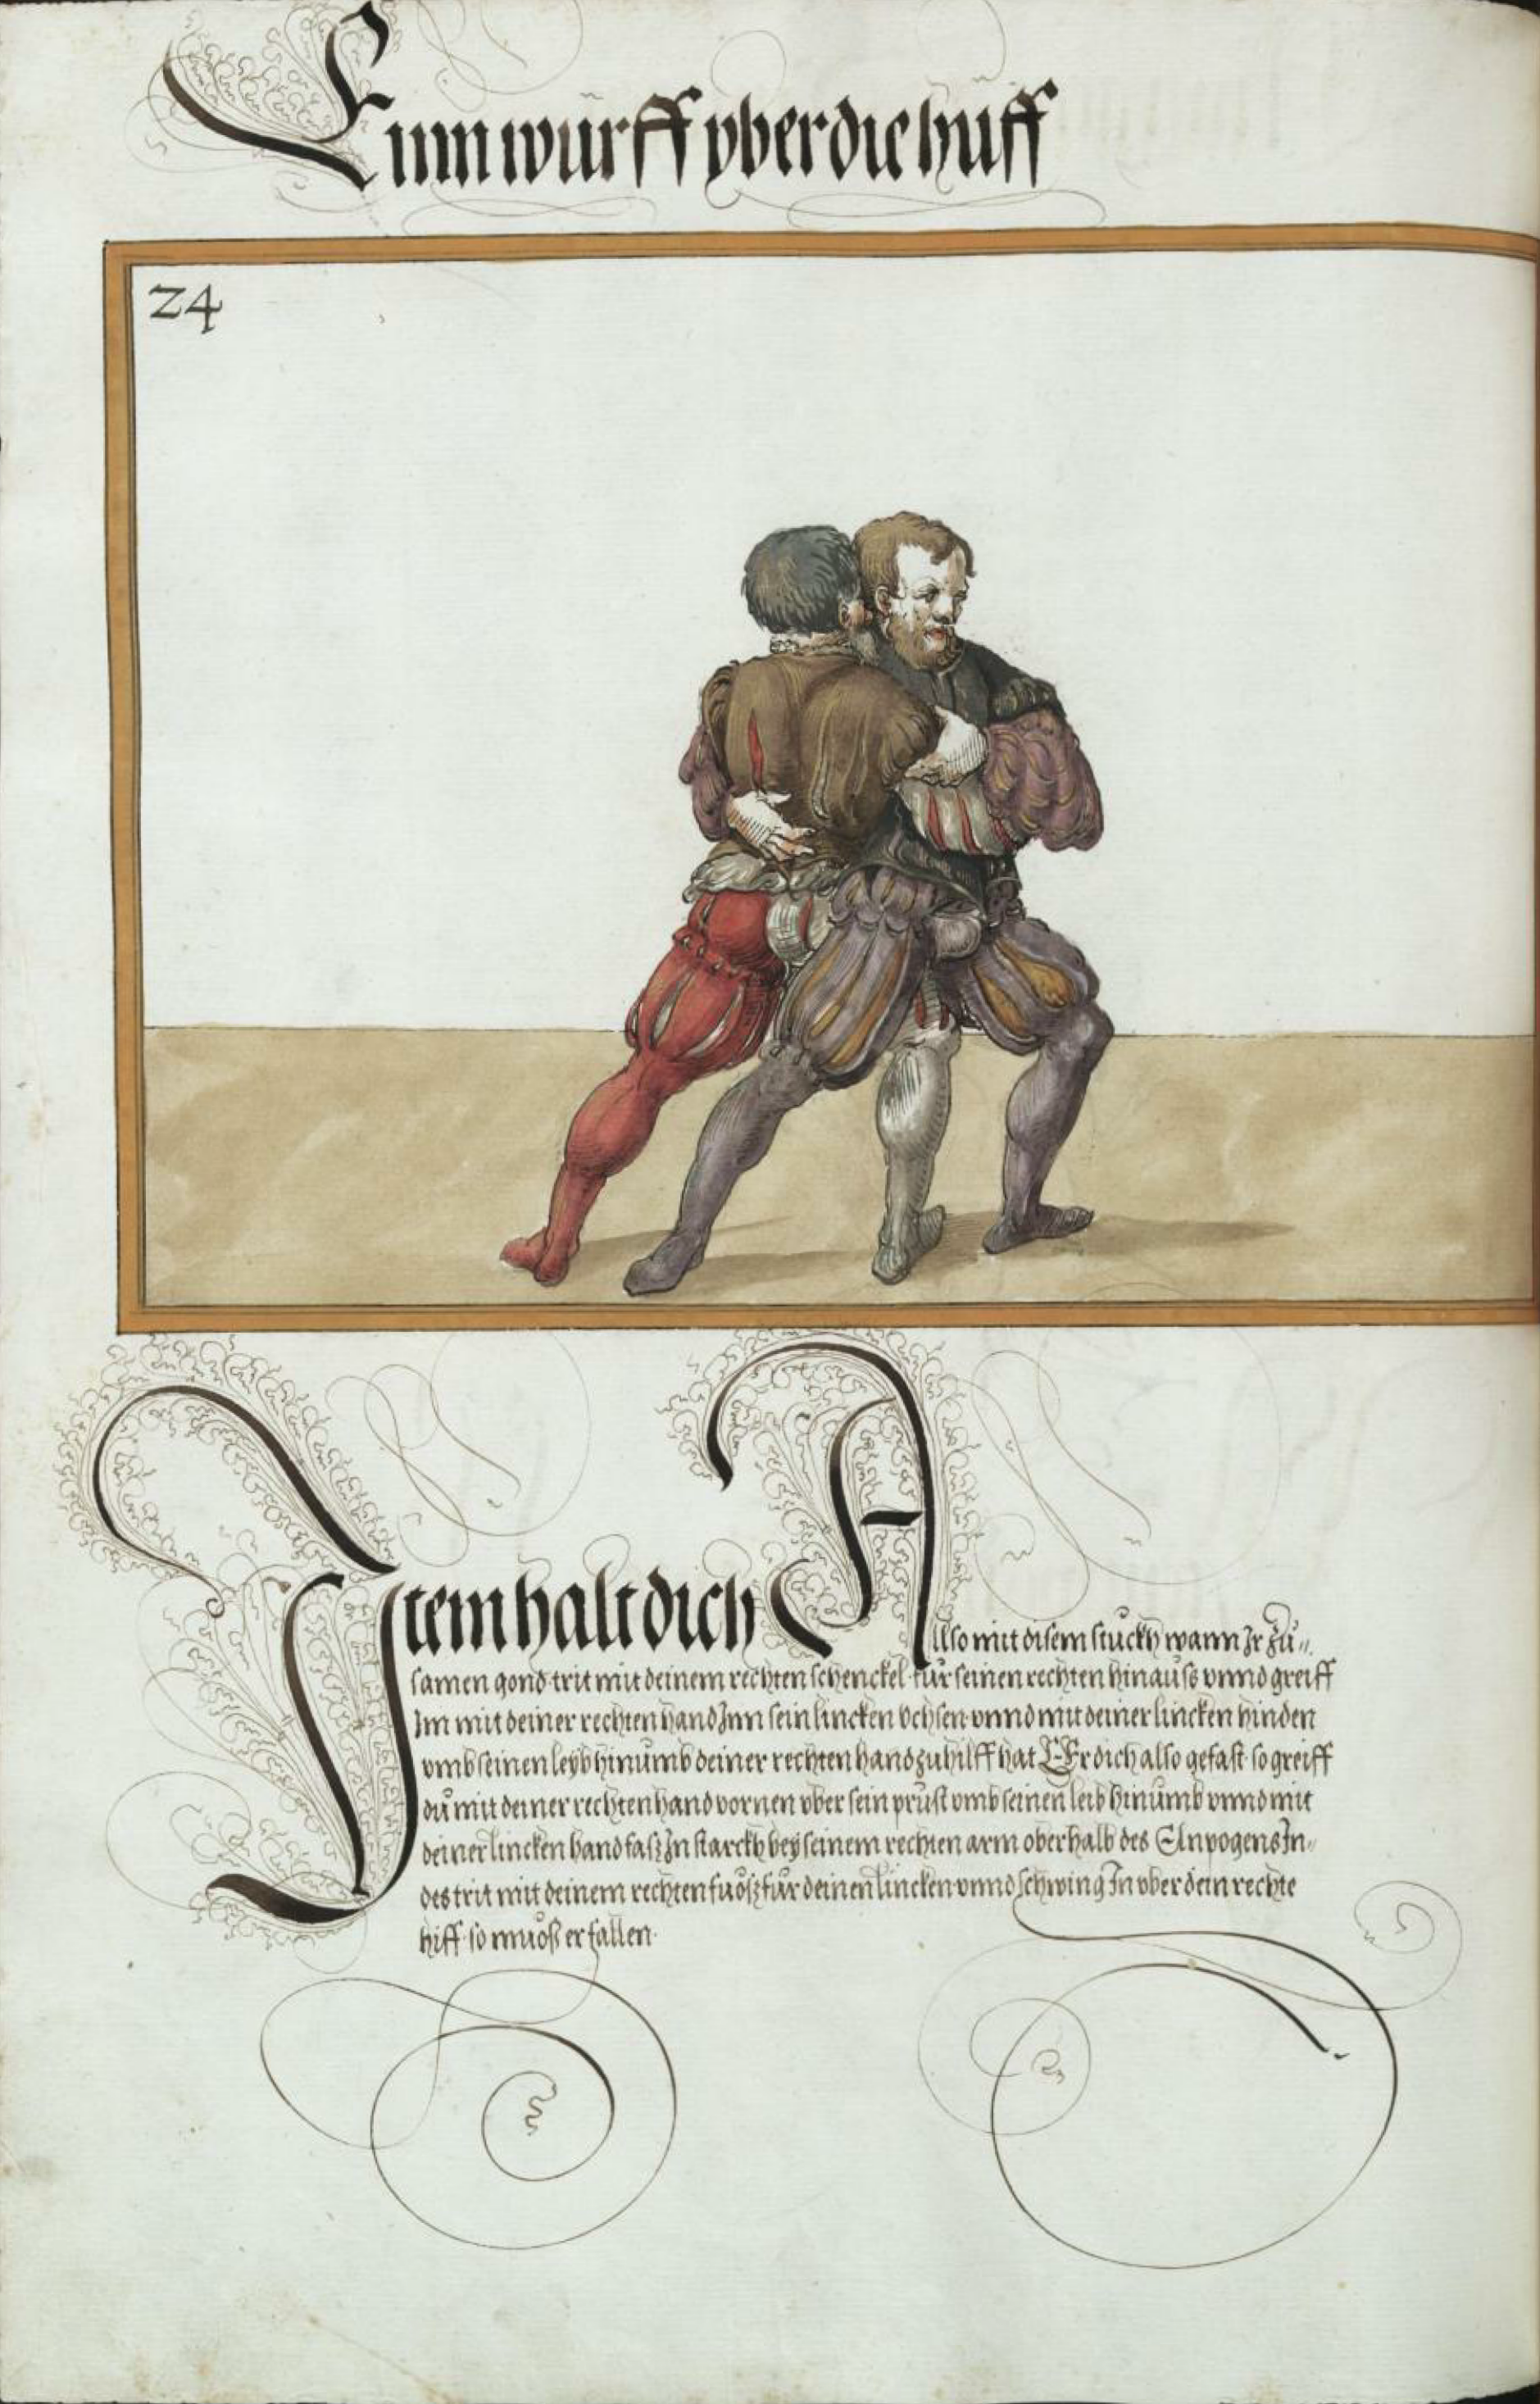 Einn wurff yber die huff
24
Item halt dich Allso mit disem stuckh wann Ir zů„
samen gond trit mit deinem rechten schenckel fur seinen rechten hinauss vnnd greiff
Im mit deiner rechten hand Inn sein lincken Vchsen vnnd mit deiner lincken hinden
vmb seinen leyb hinumb deiner rechten hand zu hilff hat Er dich also gefast so greiff
du mit deiner rechten hand vornen vber sein prust vmb seinen leib hinumb vnnd mit
deiner lincken hand fasz In starckh bey seinem rechten arm oberhalb des Elnpogens In„
des trit mit deinem rechten fuosz für deinen lincken vnnd schwing In vber dein rechte
hiff so muoß er fallen